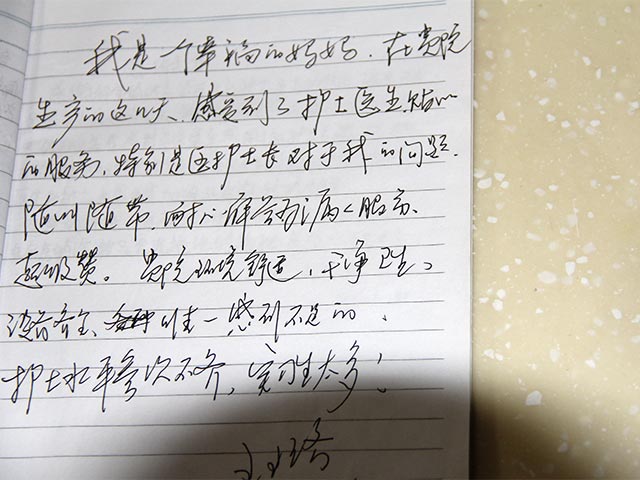 我是一个幸福的妈妈.在贵院
生产的这几天、感受到了护士医生贴心
的服务,特别是区护士长对于我的问题.
随叫随答,耐心解答 服务、
超级赞。贵院环境舒适,干净卫生、
设备齐全、唯一感到不足的、
护士水平参次不齐,实习生太多!